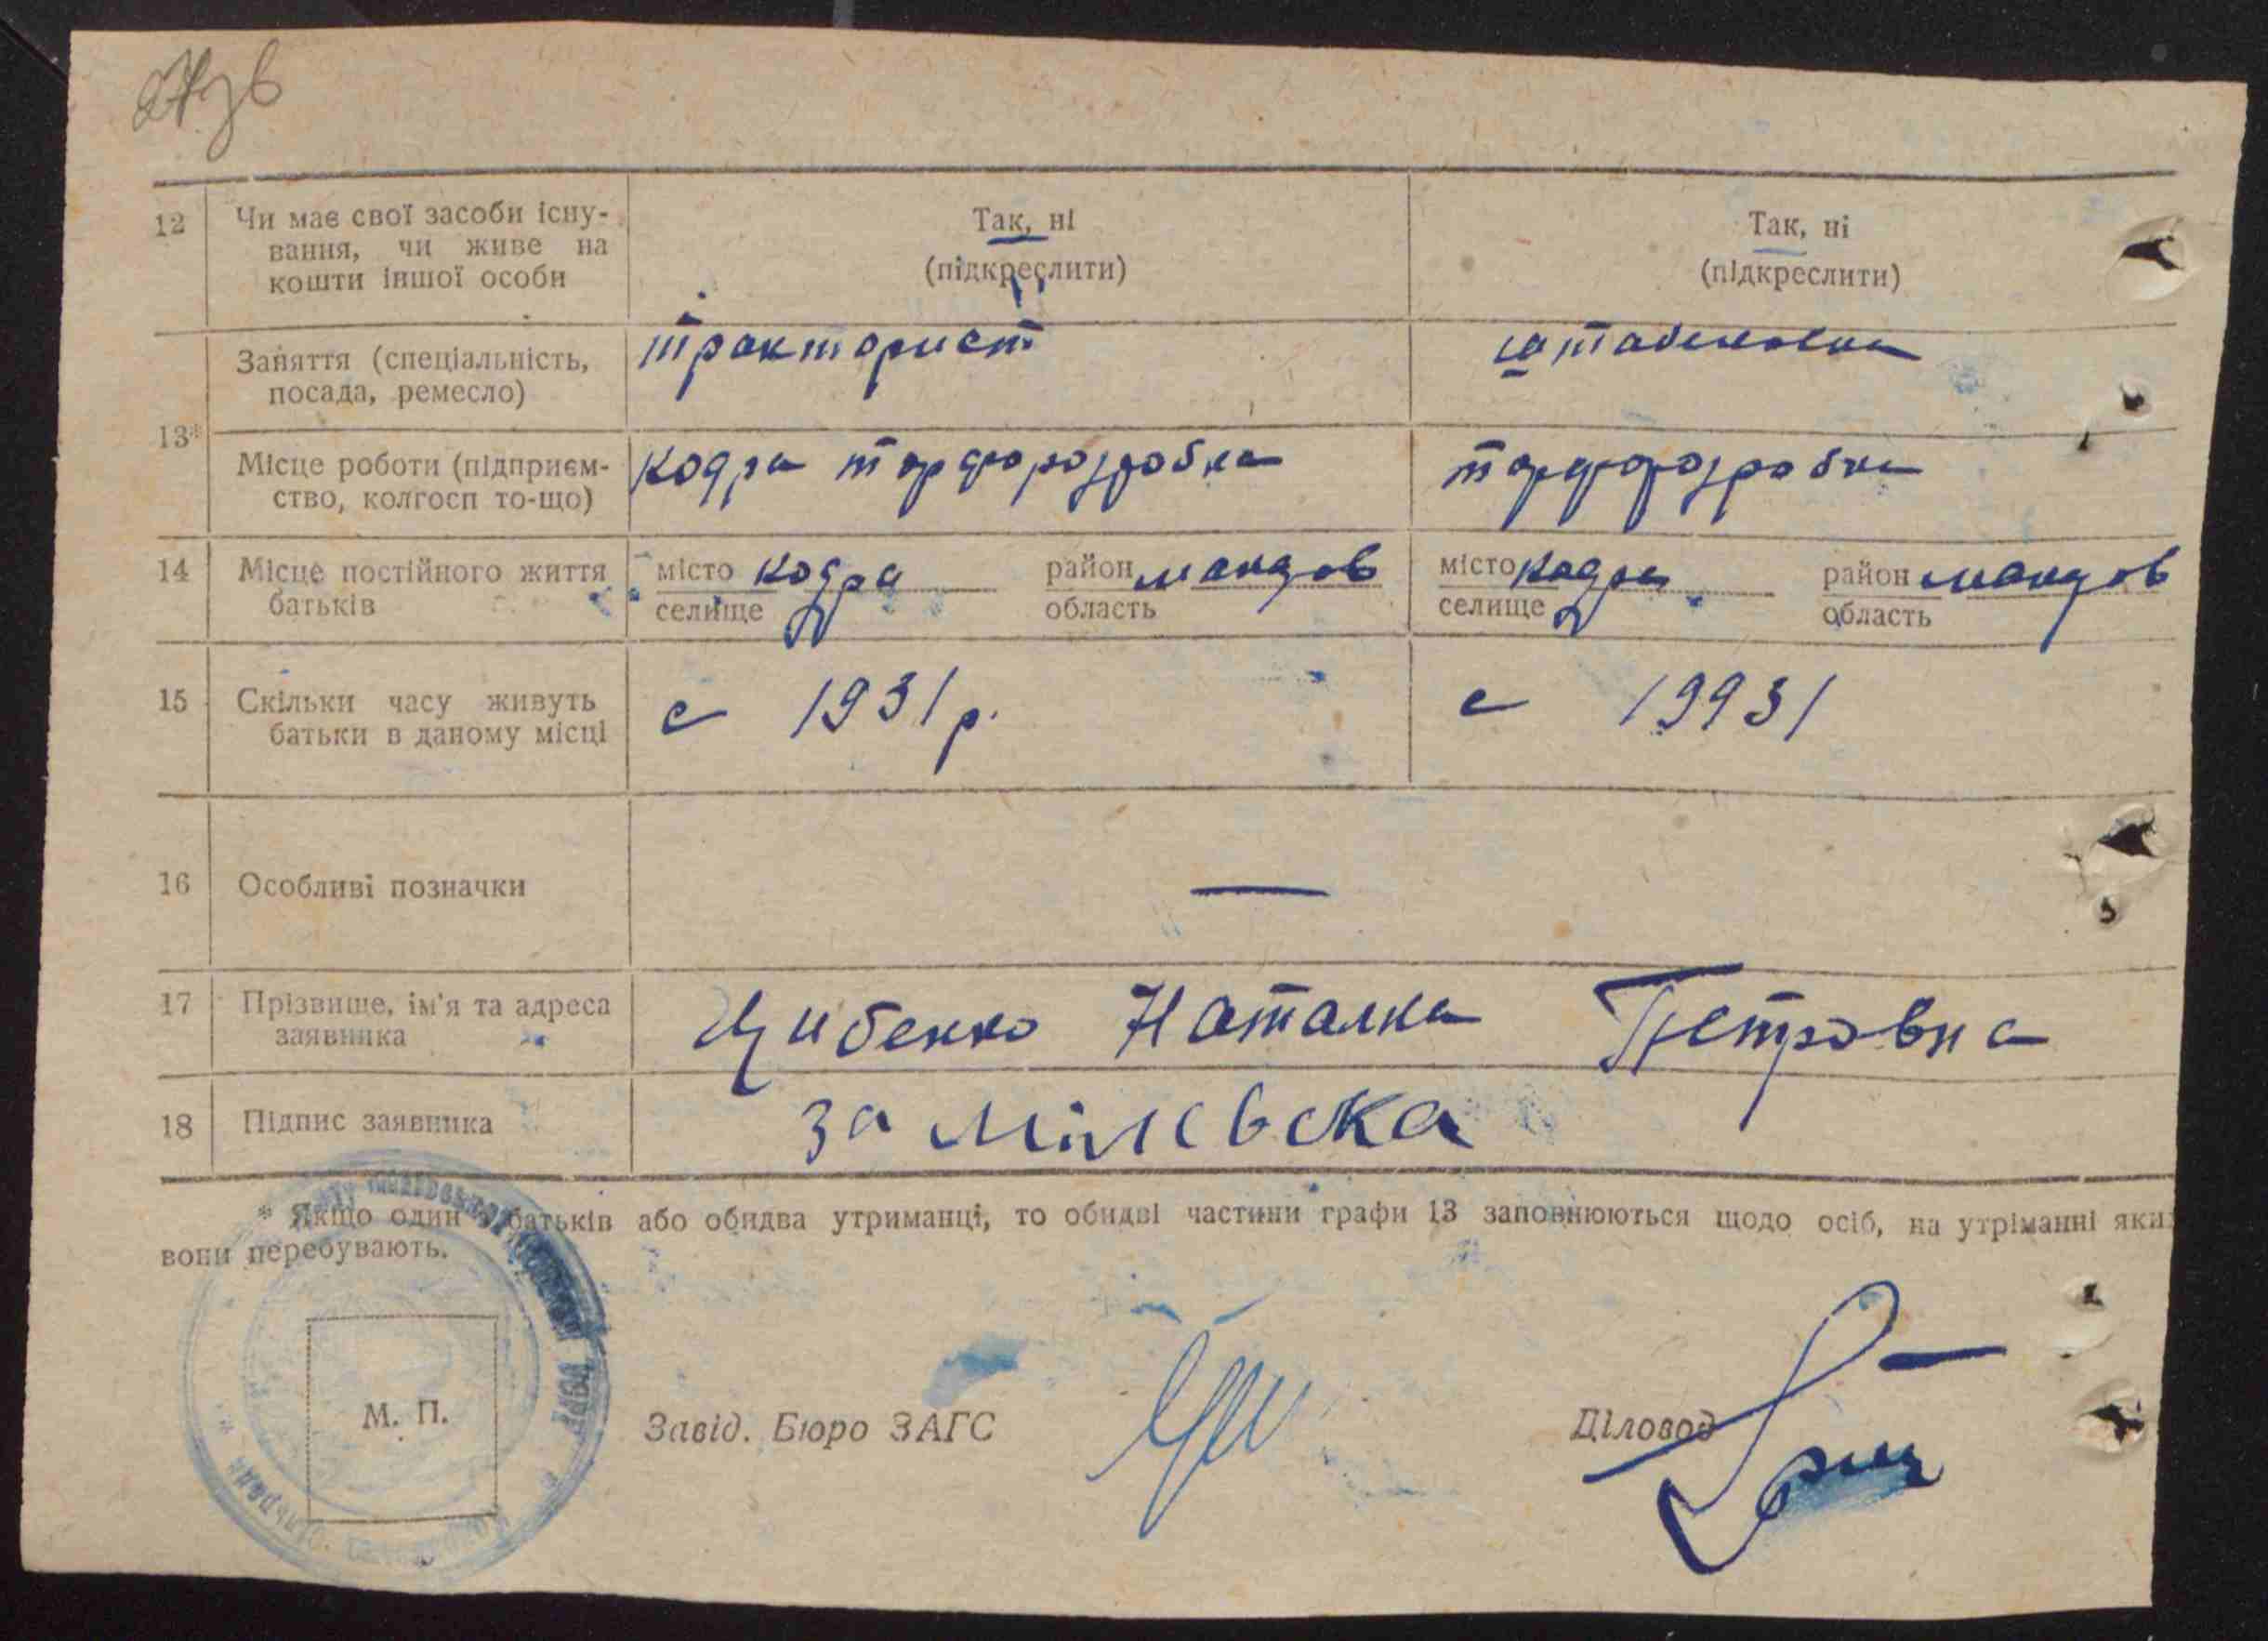 27зв
12 Чи має свої засоби існу-
вання, чи живе на
кошти іншої особи
Так, ні
(підкреслити)
Так, ні
(підкреслити)
13*
Заняття (спеціальність,
посада, ремесло)
тракторист
штабеловка
Місце роботи (підприєм-
ство, колгосп то-що)
Кодра торфорозробка
торфорозробка
14 Місце постійного життя
батьків
місто Кодра район макаров
селище область
місто Кодра район макаров
селище область
15 Скільки часу живуть
батьки в даному місці
с 1931 р.
с 19931
16 Особливі позначки
—
17 Прізвище, ім'я та адреса
заявника
Цибенко Наталка Петровна
18 Підпис заявника
за
* Якщо один з батьків або обидва утриманці, то обидві частини графи 13 заповнюються щодо осіб, на утріманні яких
вони перебувають.
М. П.
Завід. Бюро ЗАГС
Діловод